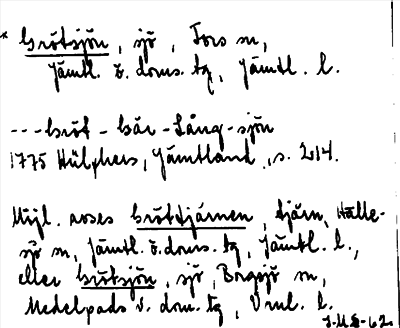 * Grötsjön, sjö, Fors sn,
Jämtl. ö. doms. tg, Jämtl. l.
---Gröt-Går-Lång-sjön
1775 Hülphers, Jämtland, s. 214.
Möjl. avses Gröttjärnen, tjärn, Hälle-
sjö sn, Jämtl. ö. doms. tg, Jämtl. l.,
eller Grötsjön, sjö, Borgsjö sn,
Medelpads v. dom. tg, Vnl. l.